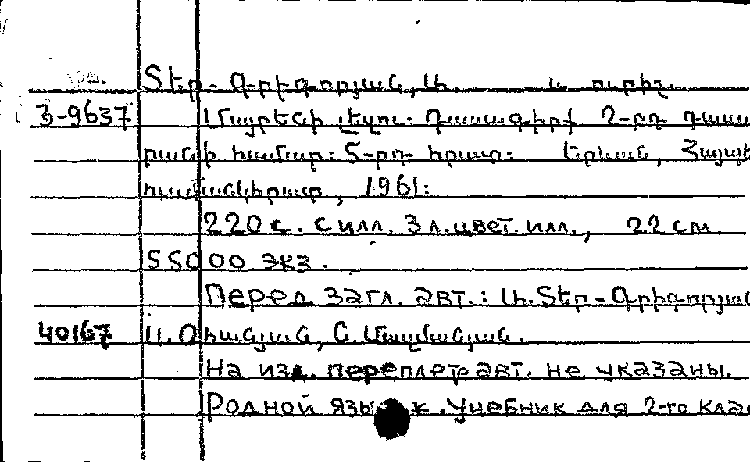 Տեր-Գրիգորյան, Ա. և ուրիշ.
3-9637 Մայրենի լեզու: Դասագիրք 2-րդ դաս
րանի համար: 5-րդ հրատ: Երևան, Հայպ
, 1961:
220 с. с илл. 3 л. цвет. илл., 22 см.
55000 экз.
Перед загл. авт.: Ա. Տեր-Գրիգորյան
40167 Ա. Օհանյան,
На изд. переплете авт. не указаны.
Родной язык. Учебник для 2-го кла